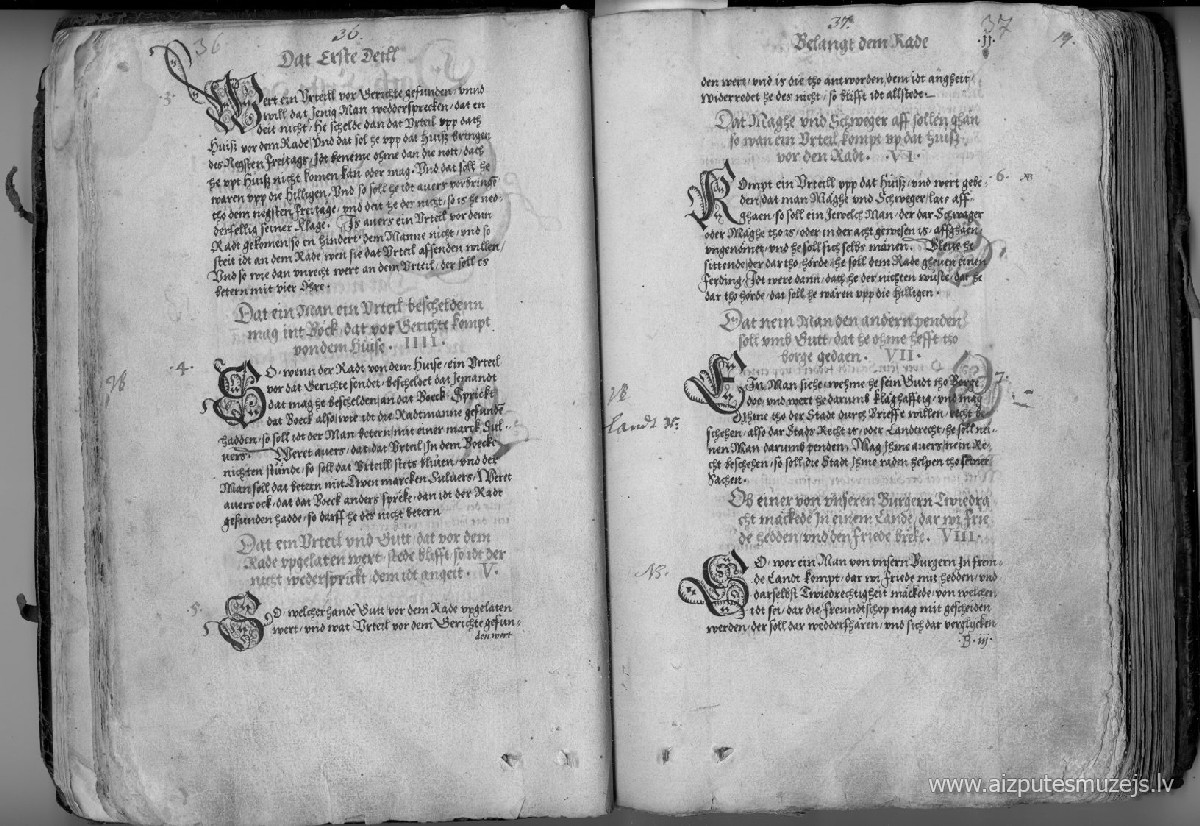 36
36.
Dat Erste Deill
3.
Wert ein Vrteill vor Gerichte gefunden, vnnd
will dat Jenig Man weddersprecken, dat en
deit nicht, He schelde dan dat Vrteil vpp dath
Huiß vor dem Rade, Vnd dat sol he vpp dat Huiß bringen
des Negsten Freitags, Idt beneme ohme dan die nott, dath
he vpt Huiß nicht komen kan oder mag. Vnd dat soll he
waren vpp die Hilligen. Vnd so soll he idt auers vorbringen
tho dem negsten Freitage, vnd deit he des nicht, so is he ned-
derfellig seiner Klage. Is auers ein Vrteil vor denn
Radt gekomen so en hindert dem Manne nicht, vnd so
steit idt an dem Rade wen sie dat Vrteil affsenden willen,
Vnd so we dan vnrecht wert an dem Vrteil, der soll es
betern mit vier Ohre.
Dat ein Man ein Vrteil bescheldenn
mag int Bock, dat vor Gerichte kompt
von dem Huise. IIII.
4.
SO, wenn der Radt von dem Huise, ein Vrteil
vor dat Gerichte sendet, bescheldet dat Jemandt
dat mag he beschelden an dat Boeck, Sprickt
dat Boeck also, wie idt die Radtmanne gefunden
hadden, so soll idt der Man betern, mit einer marck Sul-
uers. Weret auers, dat dat Vrteil, In dem Boecke
nichten stunde, so soll dat Vrteill stets bliuen, vnd der
Man soll dat betern mit Twen marcken Suluers, Weret
auers ock, dat dat Boeck anders spreke, dan idt der Radt
gefunden hadde, so darff he des nicht betern
Dat ein Vrteil vnd Gutt, dat vor dem
Rade vpgelaten wert, stede blifft, so idt der
nicht wedersprickt, dem idt angeit. V.
5.
SO, welcherhande Gutt vor dem Rade vpgelaten
wert, vnd wat Vrteil vor dem Gerichte gefun-
den wert
37.
37
Belangt dem Rade
.ij.
19.
den wert, vnd is die tho antworden, dem idt angheit,
widerredet he des nicht, so blifft idt allstede.
Dat Maghe vnd Schweger aff sollen ghan
so wan ein Vrteil kompt vp dat huiß,
vor den Radt. VI.
6.
KOmpt ein Vrteill vpp dat Huiß, vnd wert gebe-
den, dat man Maghe vnd Schweger, lat aff-
ghaen, so soll ein Jewelck Man, der dar Schwager
oder Maghe tho is, oder in der acht gewesen is, affghaen,
vngenömet, vnd he soll sich selbs manen. Bleue he
sittende, der dar tho hörde, he soll dem Rade gheuen einen
Ferding, Idt were dann, dath he der nichten wuste, dat he
dar tho hörde, dat soll he waren vpp die Hilligen.
Dat nein Man den andern penden
soll vmb Gutt, dat he ohme hefft tho
borge gedaen. VII.
7.
EIn Man siehe, wehme he sein Gudt tho Borge
doo, vnd wert he darumb klaghafftig, vnd mag
Ohme tho der Stadt durch Brieffe willen, recht be-
schehen, also dar Stadt Recht is, oder Landrecht, he soll nei-
nen Man darumb penden, Mag Ihme auers nein Re-
cht beschehen, so soll die Stadt Ihme raden, helpen tho seiner
Sachen.
Ob einer von vnseren Burgern Twiedra
cht mackede In einem Lande, dar wi frie
de hedden, vnd den Friede breke. VIII.
NB.
SO, wor ein Man von vnsern Burgern In from-
de Landt kompt, dar wi Friede mit hedden, vnd
darselbst Twiedrechtigheit mackede, von welchen
idt sei, dar die Freundtschop mag mit gescheiden
werden, der soll dar weddersharen, vnd sich dat verglycken
B. iij.
www.aizputesmuzejs.lv